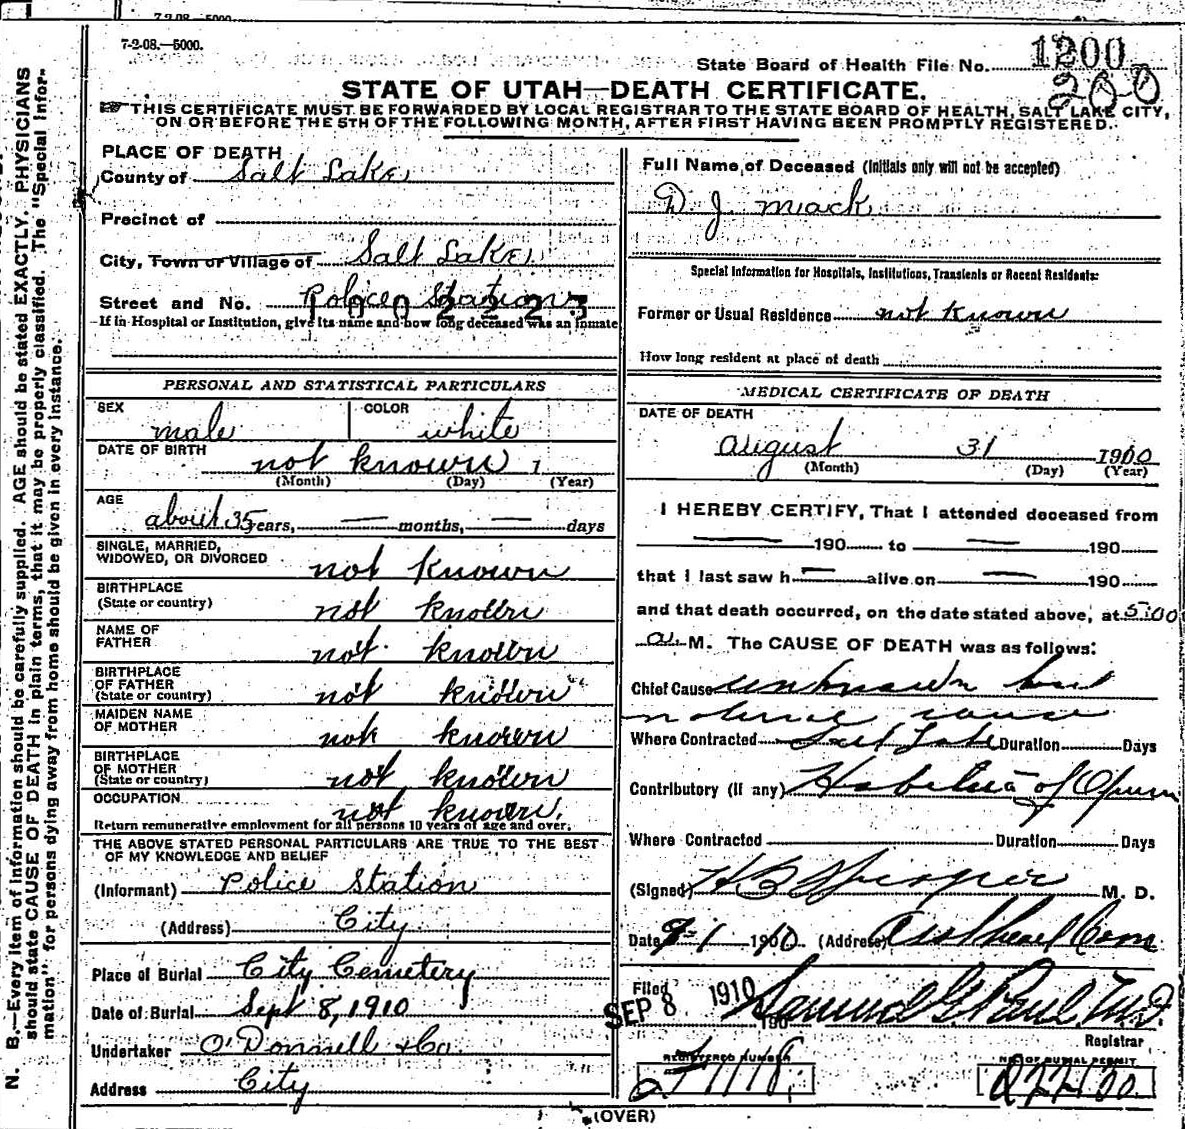 7-2-08.—5000.
State Board of Health File No. 1200
200
STATE OF UTAH—DEATH CERTIFICATE.
THIS CERTIFICATE MUST BE FORWARDED BY LOCAL REGISTRAR TO THE STATE BOARD OF HEALTH, SALT LAKE CITY,
ON OR BEFORE THE 5TH OF THE FOLLOWING MONTH, AFTER FIRST HAVING BEEN PROMPTLY REGISTERED.
PLACE OF DEATH
County of Salt Lake
Precinct of
City, Town or Village of Salt Lake
Street and No. Police Station
If in Hospital or Institution, give its name and how long deceased was an inmate
Full Name of Deceased (Initials only will not be accepted)
D. J. Mack
Special Information for Hospitals, Institutions, Transients or Recent Residents:
Former or Usual Residence not known
How long resident at place of death
PERSONAL AND STATISTICAL PARTICULARS
SEX male COLOR white
DATE OF BIRTH not known 1
(Month) (Day) (Year)
AGE about 35 years, — months, — days
SINGLE, MARRIED,
WIDOWED, OR DIVORCED not known
BIRTHPLACE
(State or country) not known
NAME OF
FATHER not known
BIRTHPLACE
OF FATHER
(State or country) not known
MAIDEN NAME
OF MOTHER not known
BIRTHPLACE
OF MOTHER
(State or country) not known
OCCUPATION not known.
Return remunerative employment for all persons 10 years of age and over.
THE ABOVE STATED PERSONAL PARTICULARS ARE TRUE TO THE BEST
OF MY KNOWLEDGE AND BELIEF
(Informant) Police Station
(Address) City
Place of Burial City Cemetery
Date of Burial Sept 8, 1910
Undertaker O'Donnell & Co.
Address City
MEDICAL CERTIFICATE OF DEATH
DATE OF DEATH
august 31 1910
(Month) (Day) (Year)
I HEREBY CERTIFY, That I attended deceased from
— 190 to — 190
that I last saw h— alive on — 190
and that death occurred, on the date stated above, at 5:00
a. M. The CAUSE OF DEATH was as follows:
Chief Cause unknown but
natural cause
Where Contracted Salt Lake Duration Days
Contributory (if any) Habitua of Opium
Where Contracted Duration Days
(Signed) M. D.
Date 9-1 1910. (Address)
Filed SEP 8 1910 190 Samuel G. Paul M.D.
Registrar
REGISTERED NUMBER
NO. OF BURIAL PERMIT
(OVER)
N. B.—Every item of information should be carefully supplied. AGE should be stated EXACTLY. PHYSICIANS
should state CAUSE OF DEATH in plain terms, that it may be properly classified. The "Special Infor-
mation" for persons dying away from home should be given in every instance.